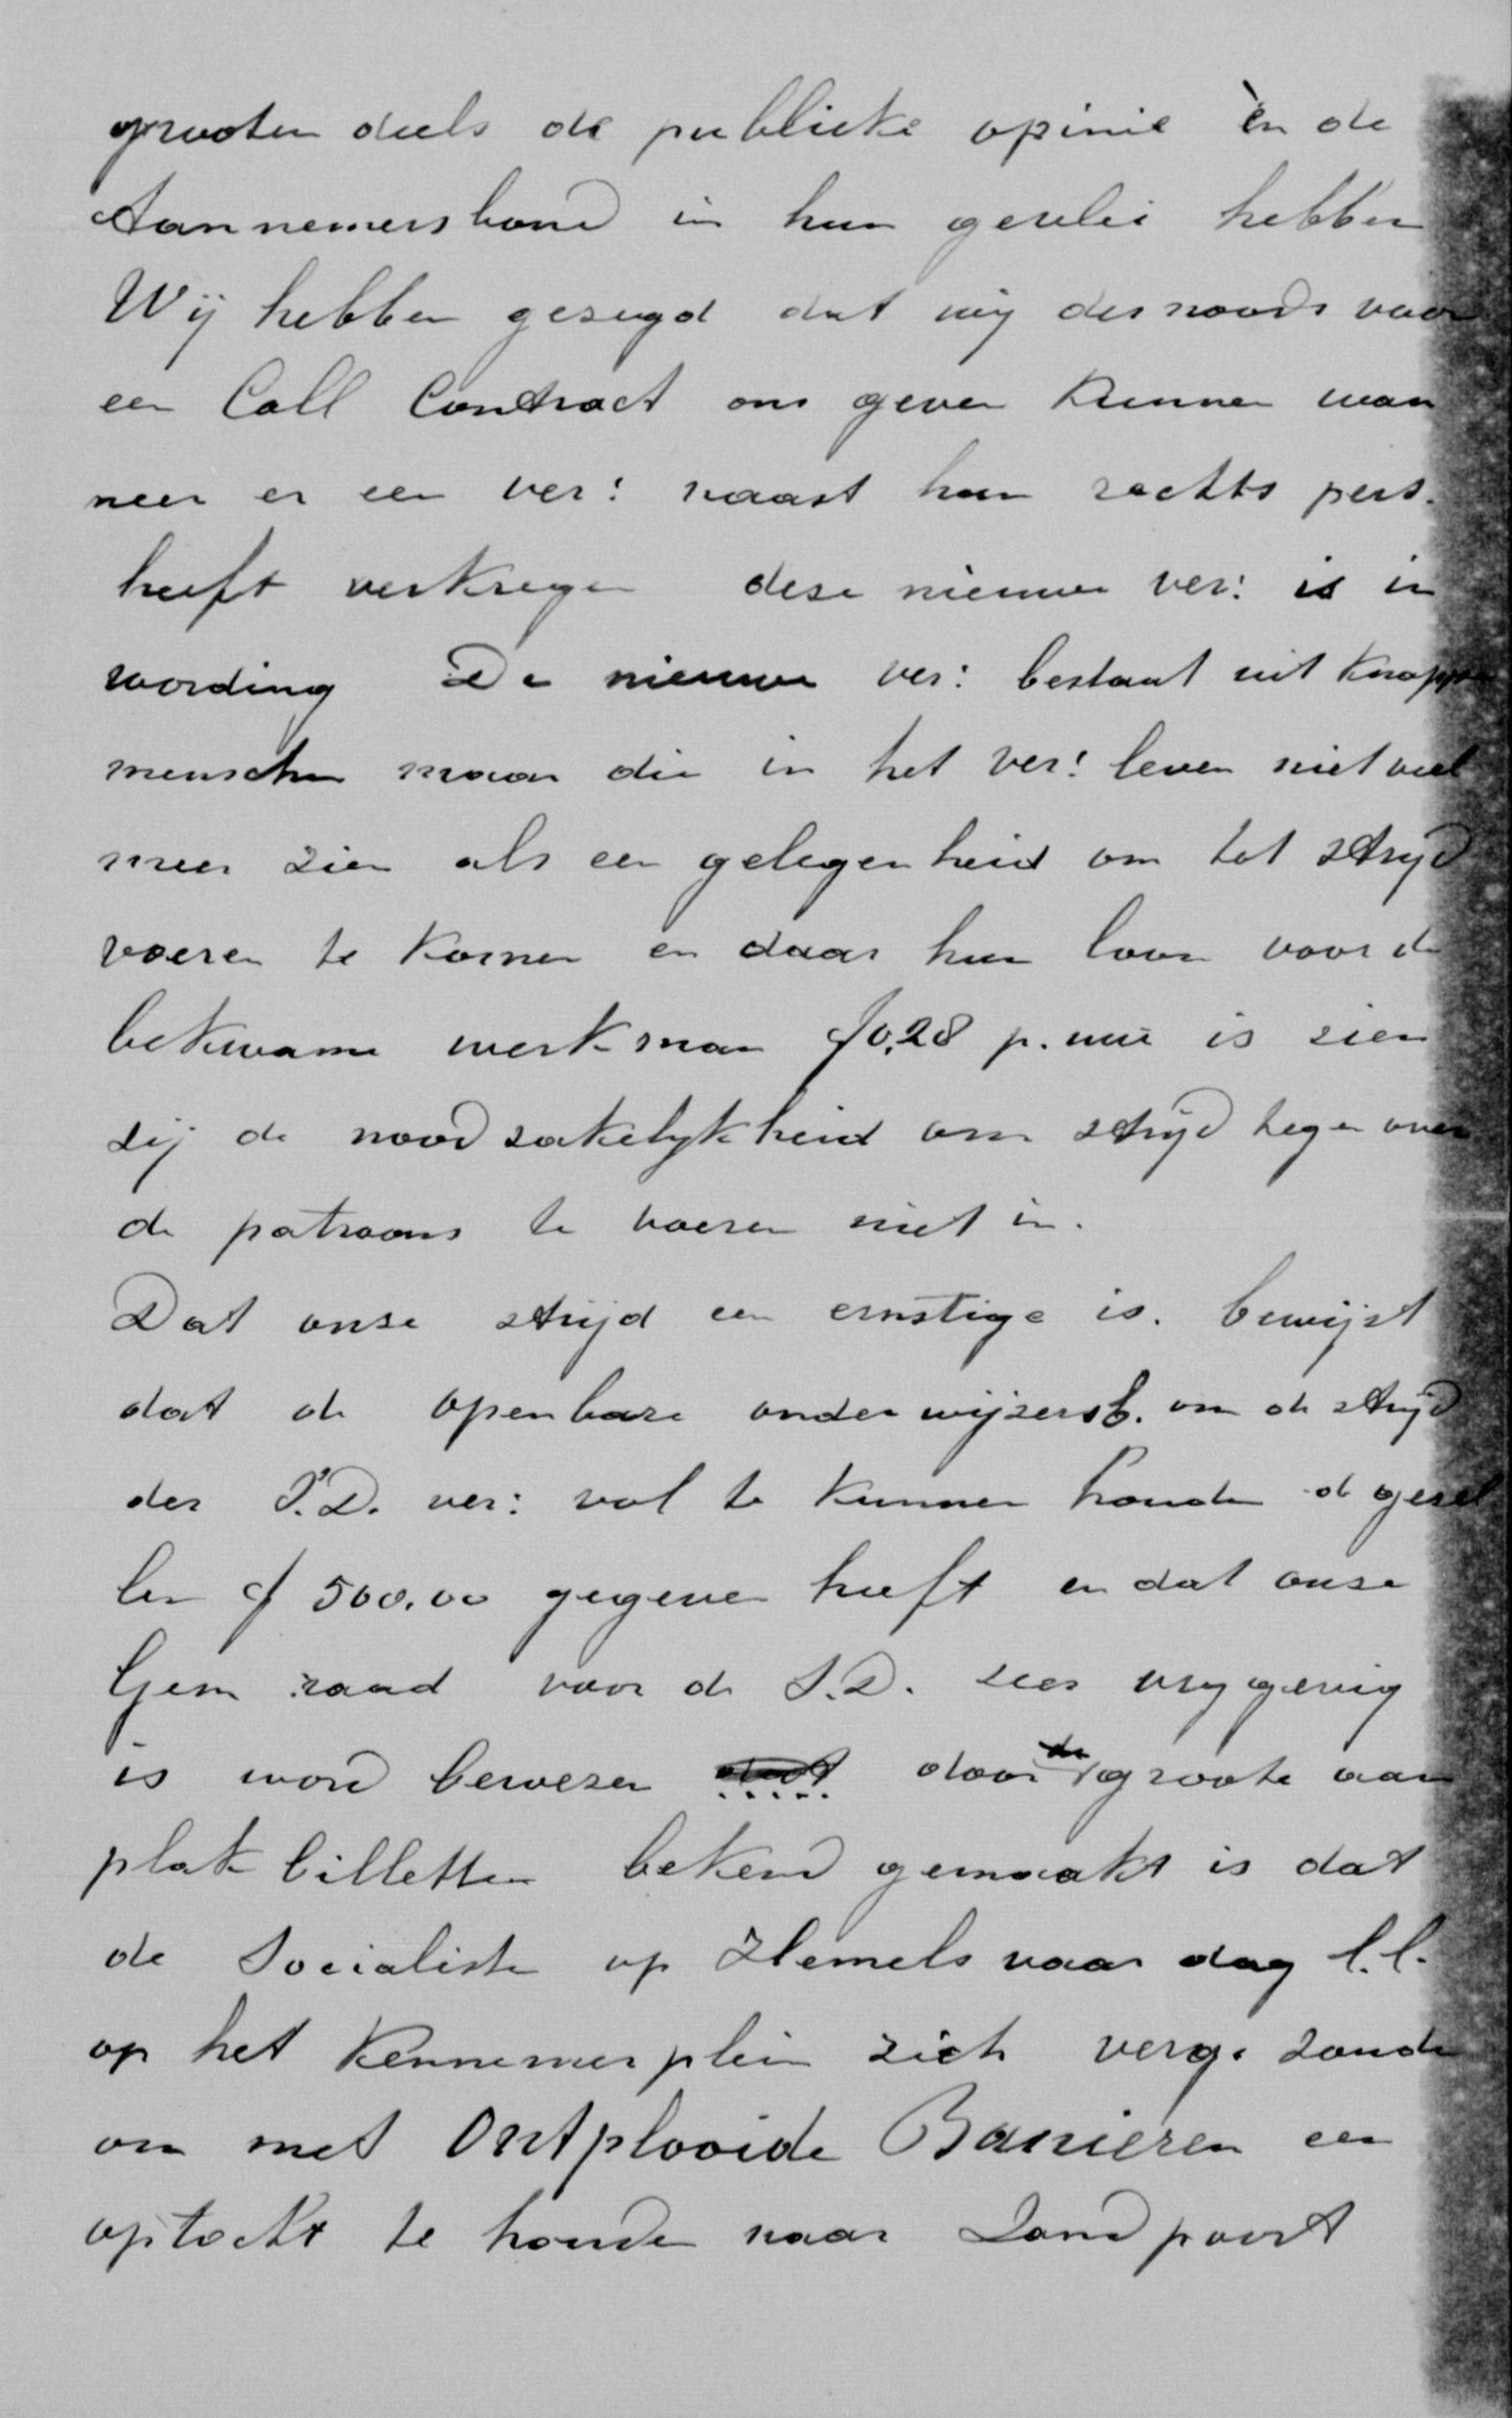 grooten deels de publieke opinie èn de
Aannemersbond in hun gevlei hebben
Wij hebben gezegd dat wij des noods voor
een Coll Contract ons geven kunnen wan
neer er een ver: naast hun rechts pers.
heeft verkregen deze nieuwe ver: is in
wording De nieuwe ver: bestaat uit knappe
menschen maar die in het ver: leven niet veel
meer zien als een gelegenheid om tot strijd
voeren te komen en daar hun loon voor de
bekwame werkman f 0,28 p. uur is zien
zij de noodzakelijkheid om strijd tegenover
de patroons te voeren niet in.
Dat onze strijd een ernstige is. bewijst
dat de openbare onderwijzersb. om de strijd
der S.D. ver: vol te kunnen houden de gezel
len f 500.00 gegeven heeft en dat onze
Gem raad voor de S.D. zeer vrygevig
is word bewezen dat door de groote aan
plak billetten bekend gemaakt is dat
de Socialisten op Hemelsvaar dag l.l.
op het Kennemerplein zich verg. zouden
om met Ontplooide Banieren een
optocht te houden naar Zandpoort